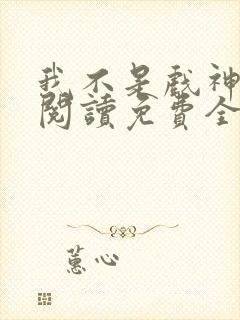 我不是戲神
閱讀免費全
蕙心